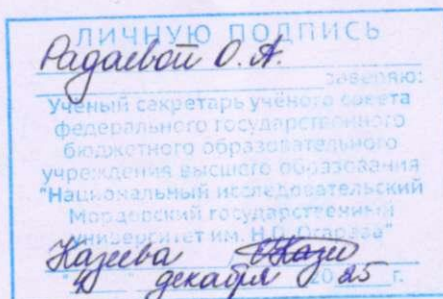 ЛИЧНУЮ ПОДПИСЬ
Радаевой О. А.
заверяю:
Ученый секретарь учёного совета
федерального государственного
бюджетного образовательного
учреждения высшего образования
"Национальный исследовательский
Мордовский государственный
университет им. Н.П. Огарёва"
Казеева
" " декабря 2025 г.